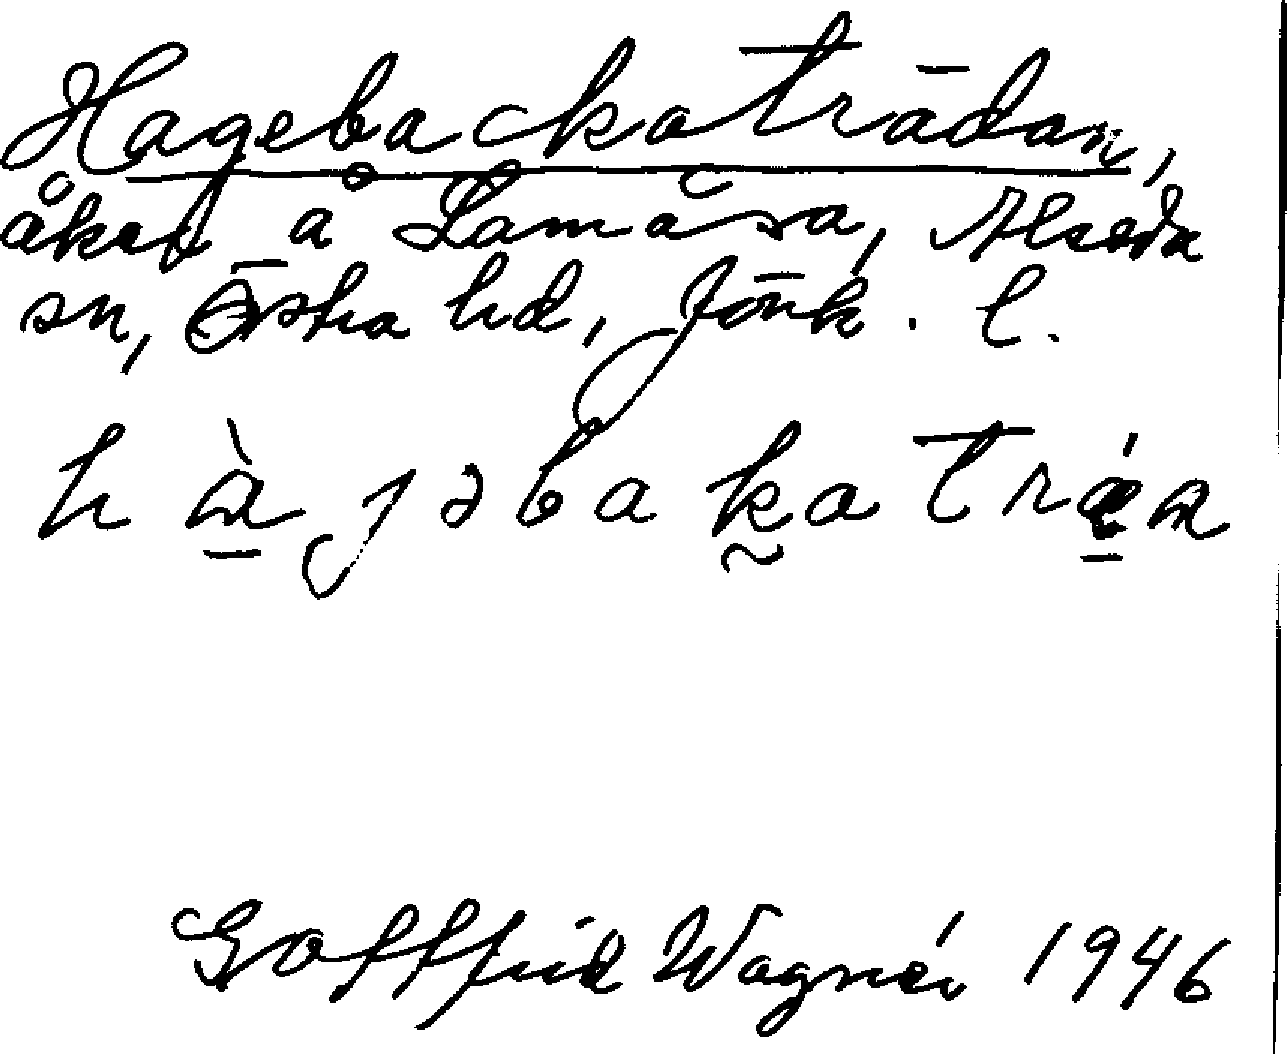 Hagebackaträdan,
åker å Lamåsa, Alseda
sn, Östra hd, Jönk. l.
hàjəbakatrǽn
Gottfrid Wagnér 1946